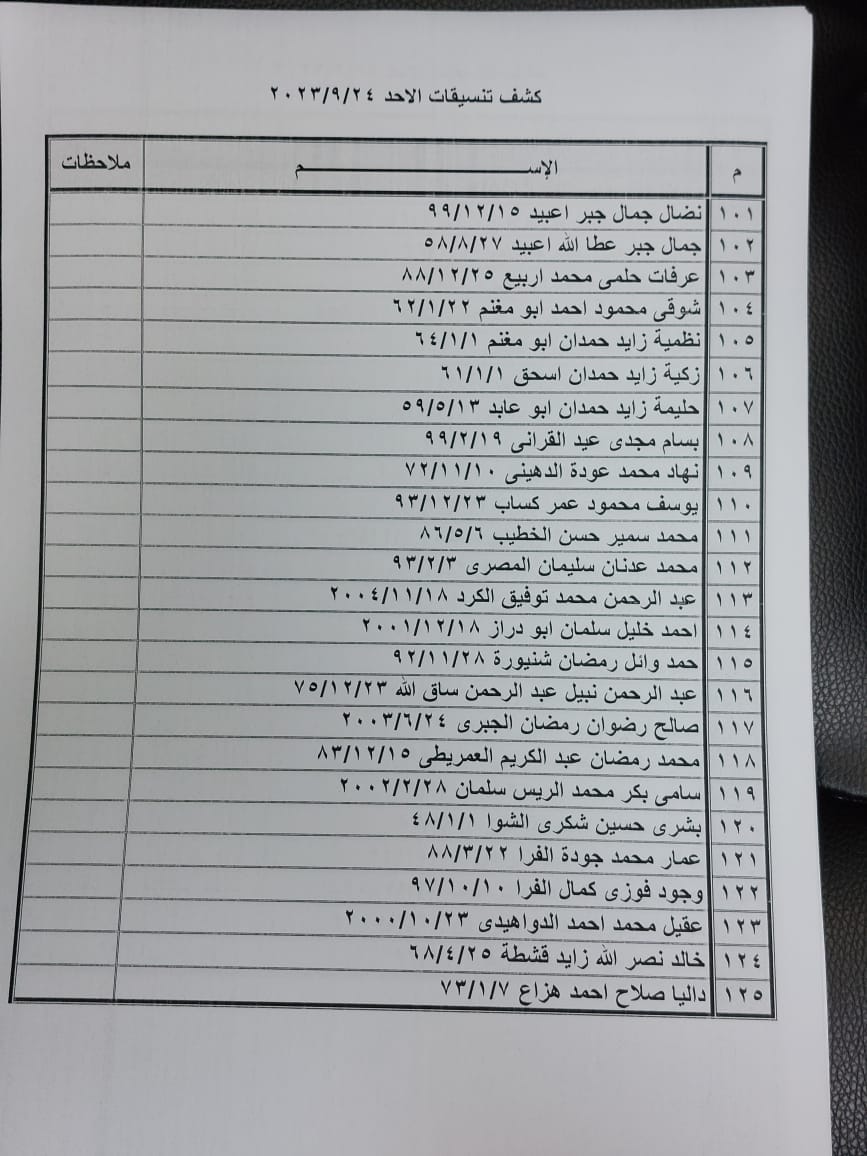 كشف تنسيقات الاحد ٢٠٢٣/٩/٢٤
م الإســـــــــــم ملاحظات
١٠١ نضال جمال جبر اعبيد ٩٩/١٢/١٥
١٠٢ جمال جبر عطا الله اعبيد ٥٨/٨/٢٧
١٠٣ عرفات حلمى محمد اربيع ٨٨/١٢/٢٥
١٠٤ شوقى محمود احمد ابو مغنم ٦٢/١/٢٢
١٠٥ نظمية زايد حمدان ابو مغنم ٦٤/١/١
١٠٦ زكية زايد حمدان اسحق ٦١/١/١
١٠٧ حليمة زايد حمدان ابو عابد ٥٩/٥/١٣
١٠٨ بسام مجدى عيد القرانى ٩٩/٢/١٩
١٠٩ نهاد محمد عودة الدهينى ٧٢/١١/١٠
١١٠ يوسف محمود عمر كساب ٩٣/١٢/٢٣
١١١ محمد سمير حسن الخطيب ٨٦/٥/٦
١١٢ محمد عدنان سليمان المصرى ٩٣/٢/٣
١١٣ عبد الرحمن محمد توفيق الكرد ٢٠٠٤/١١/١٨
١١٤ احمد خليل سلمان ابو دراز ٢٠٠١/١٢/١٨
١١٥ حمد وائل رمضان شنيورة ٩٢/١١/٢٨
١١٦ عبد الرحمن نبيل عبد الرحمن ساق الله ٧٥/١٢/٢٣
١١٧ صالح رضوان رمضان الجبرى ٢٠٠٣/٦/٢٤
١١٨ محمد رمضان عبد الكريم العمريطى ٨٣/١٢/١٥
١١٩ سامى بكر محمد الريس سلمان ٢٠٠٢/٢/٢٨
١٢٠ بشرى حسين شكرى الشوا ٤٨/١/١
١٢١ عمار محمد جودة الفرا ٨٨/٣/٢٢
١٢٢ وجود فوزى كمال الفرا ٩٧/١٠/١٠
١٢٣ عقيل محمد احمد الدواهيدى ٢٠٠٠/١٠/٢٣
١٢٤ خالد نصر الله زايد قشطة ٦٨/٤/٢٥
١٢٥ داليا صلاح احمد هزاع ٧٣/١/٧